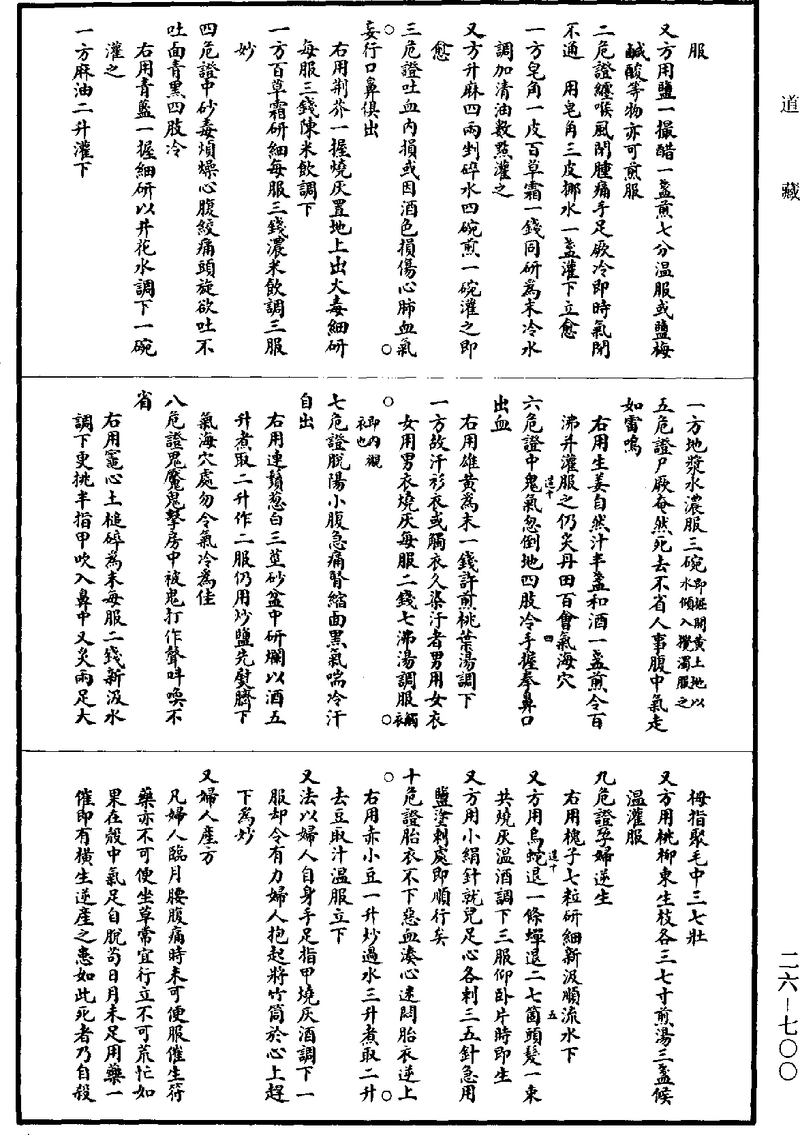 道藏
服
又方用鹽一撮醋一盞煎七分温服或鹽梅
鹹酸等物亦可煎服
二危證纏喉風閉腫痛手足厥冷即時氣閉
不通　用皂角三皮挪水一盞灌下立愈
一方皂角一皮百草霜一錢同研爲末冷水
調加清油数點灌之
又方升麻四兩剉碎水四碗煎一碗灌之即
愈
三危證吐血内損或因酒色損傷心肺血氣
妄行口鼻俱出
右用荆芥一握燒灰置地上出火毒細研
每服三錢陳米飲調下
一方百草霜研細每服三錢濃米飲調三服
妙
四危證中砂毒煩燥心腹絞痛頭旋欲吐不
吐面青黑四肢冷
右用青藍一握細研以井花水調下一碗
灌之
一方麻油二升灌下
一方地漿水濃服三碗即掘開黄土地以水傾入攪濁服之
五危證尸厥奄然死去不省人事腹中氣走
如雷鳴
右用生姜自然汁半盞和酒一盞煎令百
沸并灌服之仍灸丹田百會氣海穴
六危證中鬼氣忽倒地四肢冷手握拳鼻口
出血
右用雄黄爲末一錢許煎桃葉湯調下
一方故汗衫衣或觸衣久染汙者男用女衣
女用男衣燒灰每服二錢七沸湯調服觸衣
即内襯衣也
七危證脱陽小腹急痛腎縮面黑氣喘冷汗
自出
右用連鬚葱白三莖砂盆中研爛以酒五
升煮取二升作二服仍用炒鹽先熨臍下
氣海穴處勿令氣冷爲佳
八危證鬼魘鬼擊房中被鬼打作聲呌喚不
省
右用竈心土槌碎爲末每服二錢新汲水
調下更挑半指甲吹入鼻中又灸兩足大
拇指聚毛中三七壯
又方用桃柳東生枝各三七寸煎湯三盞候
温灌服
九危證孕婦逆生
右用槐子七粒研細新汲順流水下
又方用烏蛇退一條蟬退二七箇頭髮一束
共燒灰温酒調下三服仰卧片時即生
又方用小絹針就兒足心各刺三五針急用
鹽塗刺處即順行矣
十危證胎衣不下惡血湊心迷悶胎衣逆上
右用赤小豆一升炒過水三升煮取二升
去豆取汁温服立下
又法以婦人自身手足指甲燒灰酒調下一
服却令有力婦人抱起將竹筒於心上趕
下爲妙
又婦人産方
凡婦人臨月腰腹痛時未可便服催生符
藥亦不可便坐草常宜行立不可荒忙如
果在殼中氣足自脱苟日月未足用藥一
催即有横生逆産之患如此死者乃自殺
二六—七〇〇